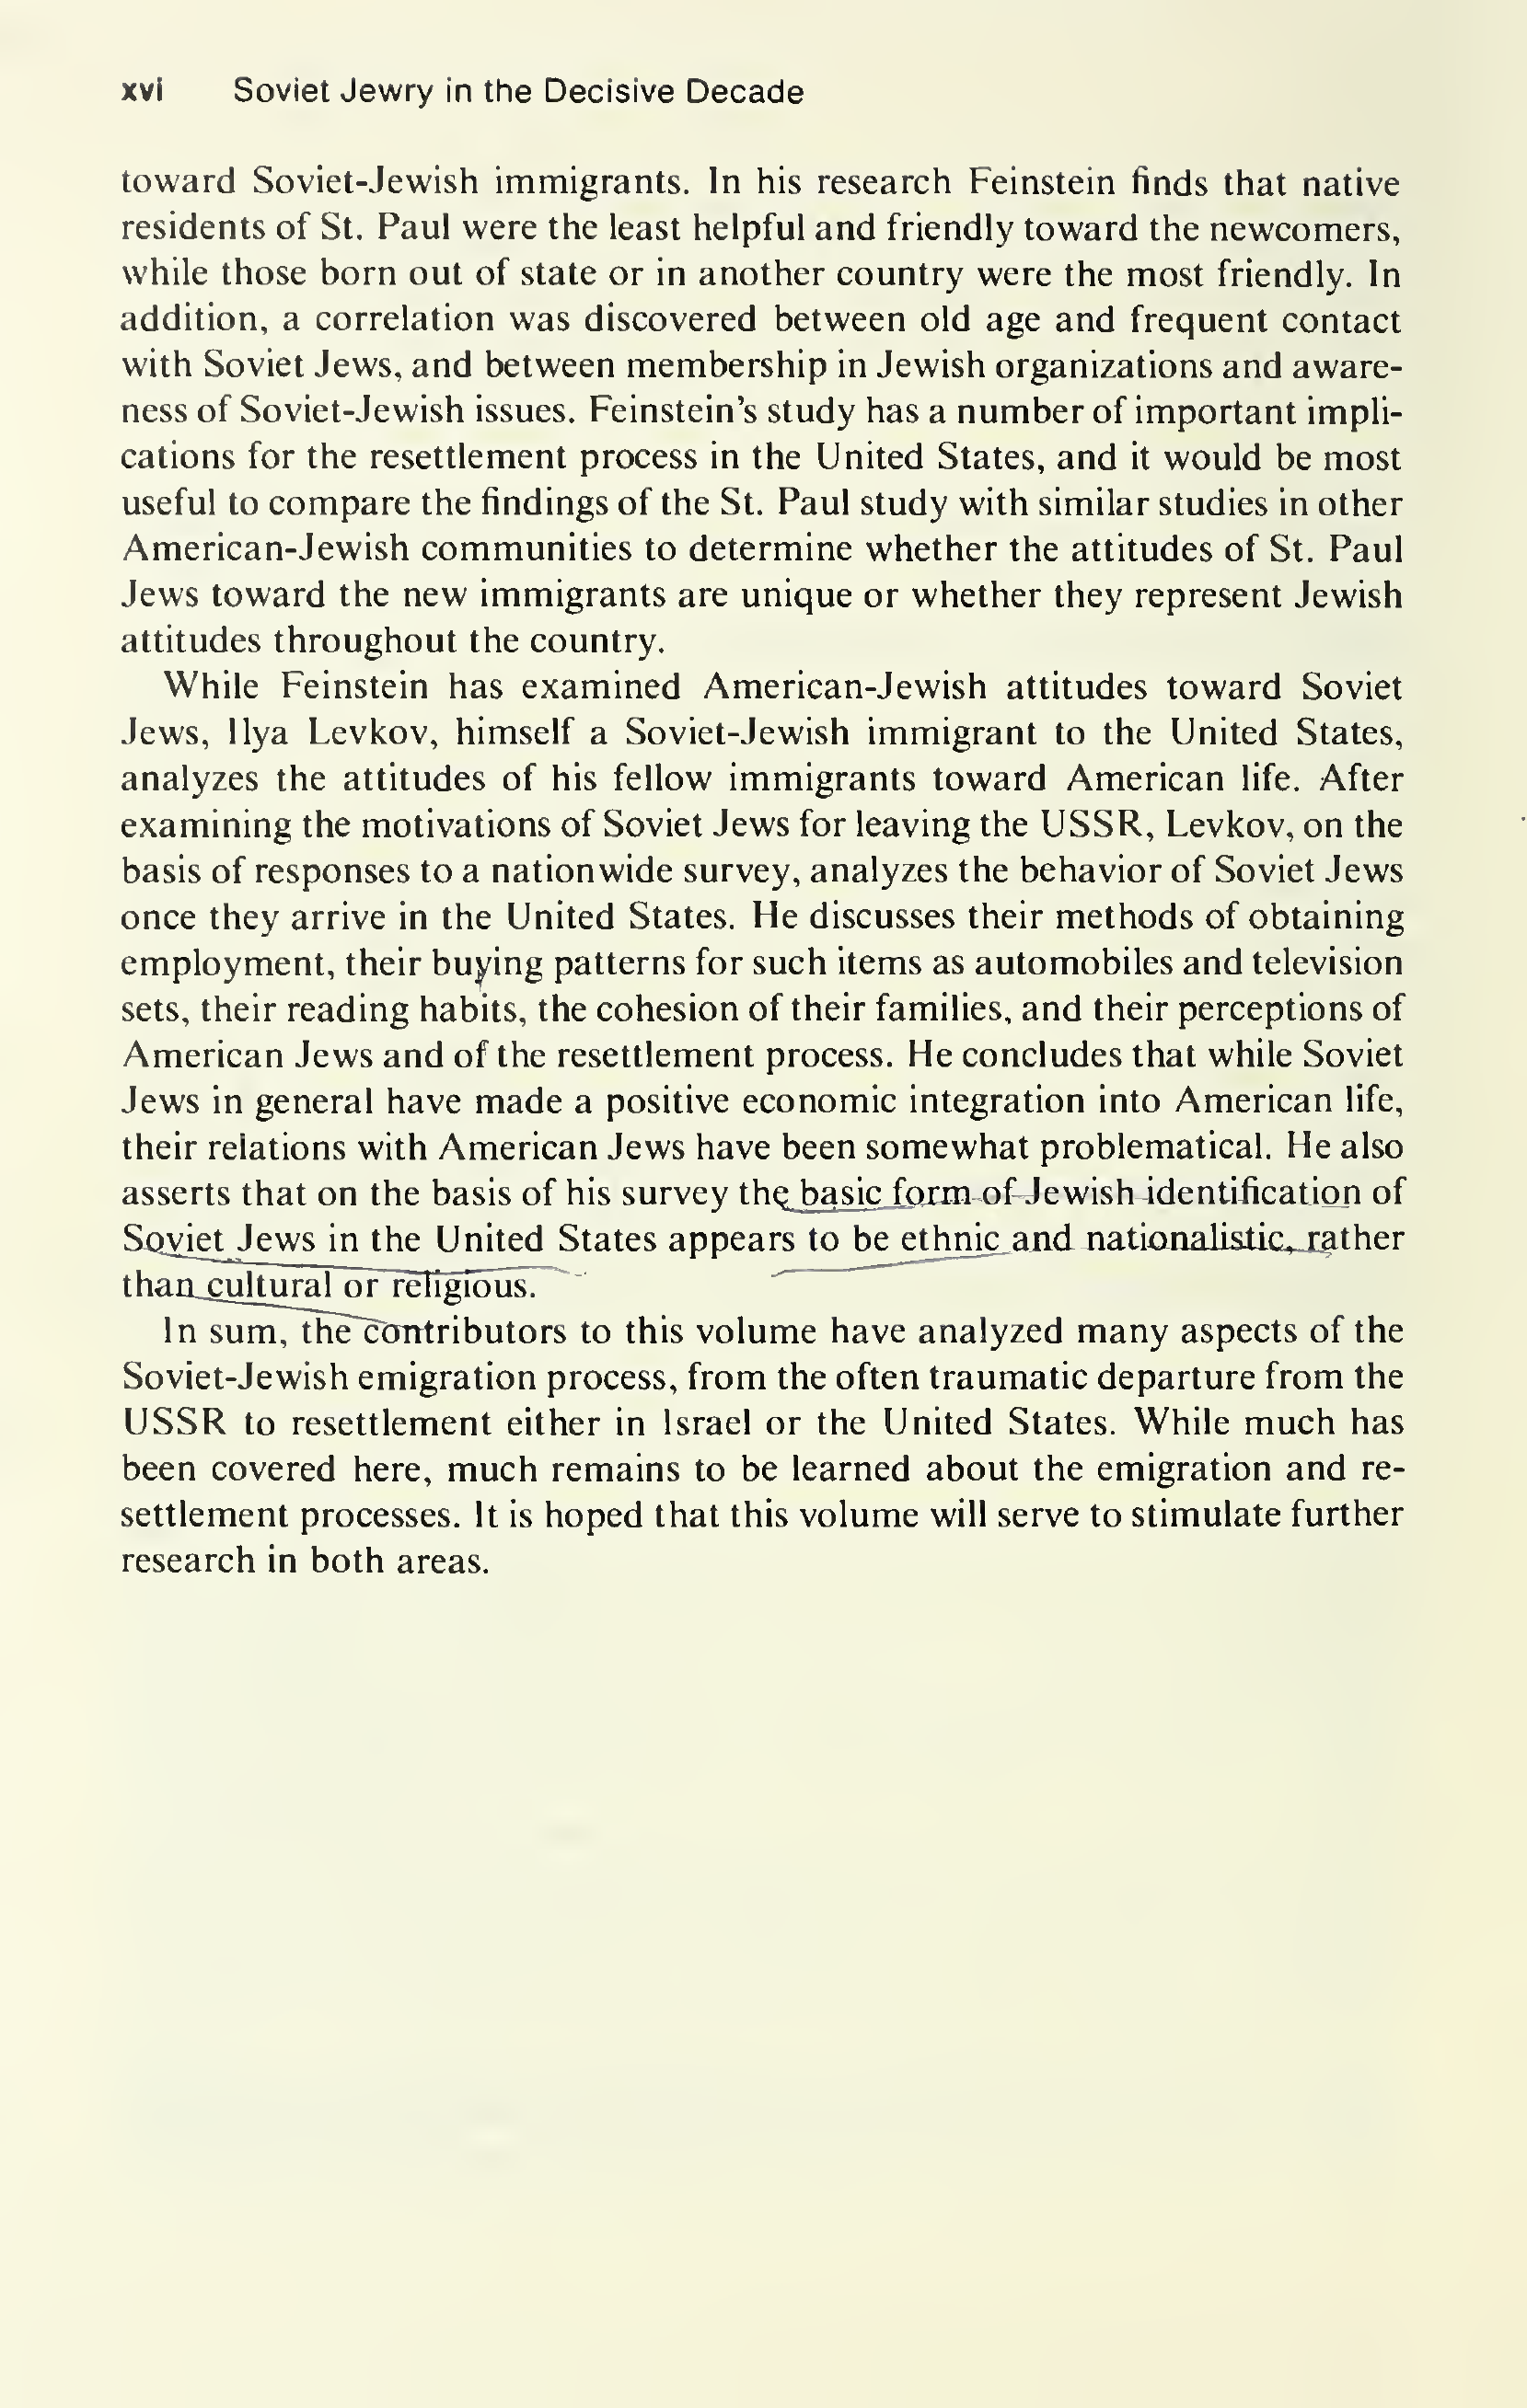 xvi Soviet Jewry in the Decisive Decade
toward Soviet-Jewish immigrants. In his research Feinstein finds that native
residents of St. Paul were the least helpful and friendly toward the newcomers,
while those born out of state or in another country were the most friendly. In
addition, a correlation was discovered between old age and frequent contact
with Soviet Jews, and between membership in Jewish organizations and aware-
ness of Soviet-Jewish issues. Feinstein's study has a number of important impli-
cations for the resettlement process in the United States, and it would be most
useful to compare the findings of the St. Paul study with similar studies in other
American-Jewish communities to determine whether the attitudes of St. Paul
Jews toward the new immigrants are unique or whether they represent Jewish
attitudes throughout the country.
While Feinstein has examined American-Jewish attitudes toward Soviet
Jews, Ilya Levkov, himself a Soviet-Jewish immigrant to the United States,
analyzes the attitudes of his fellow immigrants toward American life. After
examining the motivations of Soviet Jews for leaving the USSR, Levkov, on the
basis of responses to a nationwide survey, analyzes the behavior of Soviet Jews
once they arrive in the United States. He discusses their methods of obtaining
employment, their buying patterns for such items as automobiles and television
sets, their reading habits, the cohesion of their families, and their perceptions of
American Jews and of the resettlement process. He concludes that while Soviet
Jews in general have made a positive economic integration into American life,
their relations with American Jews have been somewhat problematical. He also
asserts that on the basis of his survey the basic form of Jewish identification of
Soviet Jews in the United States appears to be ethnic and nationalistic, rather
than cultural or religious.
In sum, the contributors to this volume have analyzed many aspects of the
Soviet-Jewish emigration process, from the often traumatic departure from the
USSR to resettlement either in Israel or the United States. While much has
been covered here, much remains to be learned about the emigration and re-
settlement processes. It is hoped that this volume will serve to stimulate further
research in both areas.